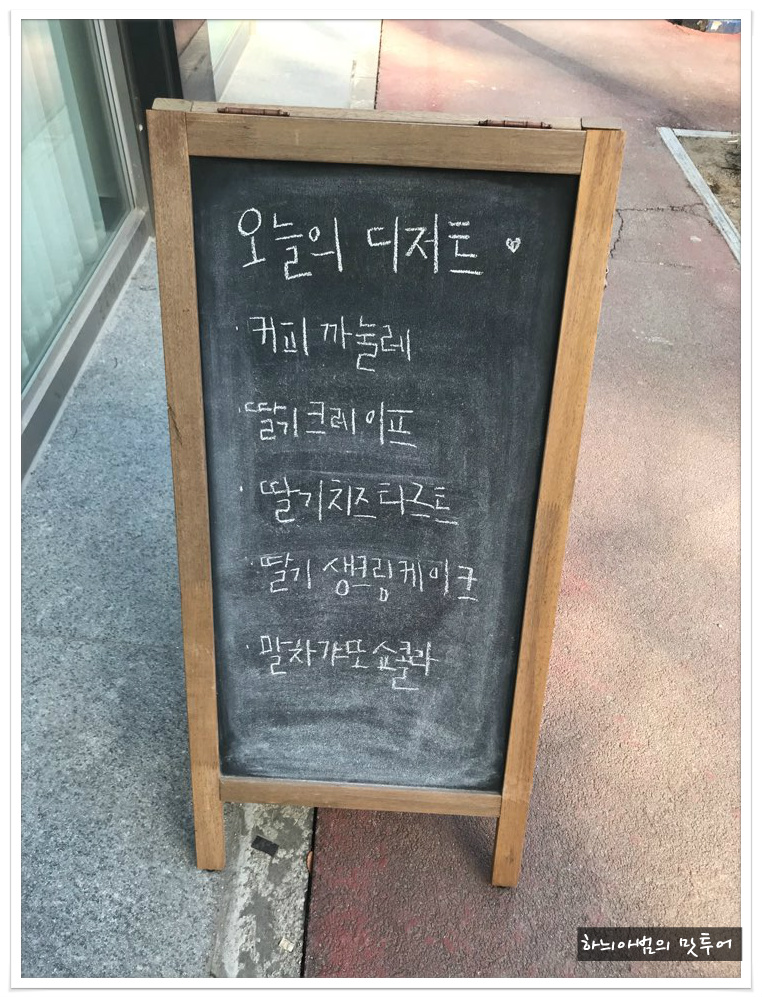 오늘의 디저트 ♡
· 커피 까눌레
· 딸기크레이프
· 딸기치즈타르트
· 딸기 생크림케이크
· 말차갸또쇼콜라
하늬아범의 맛투어